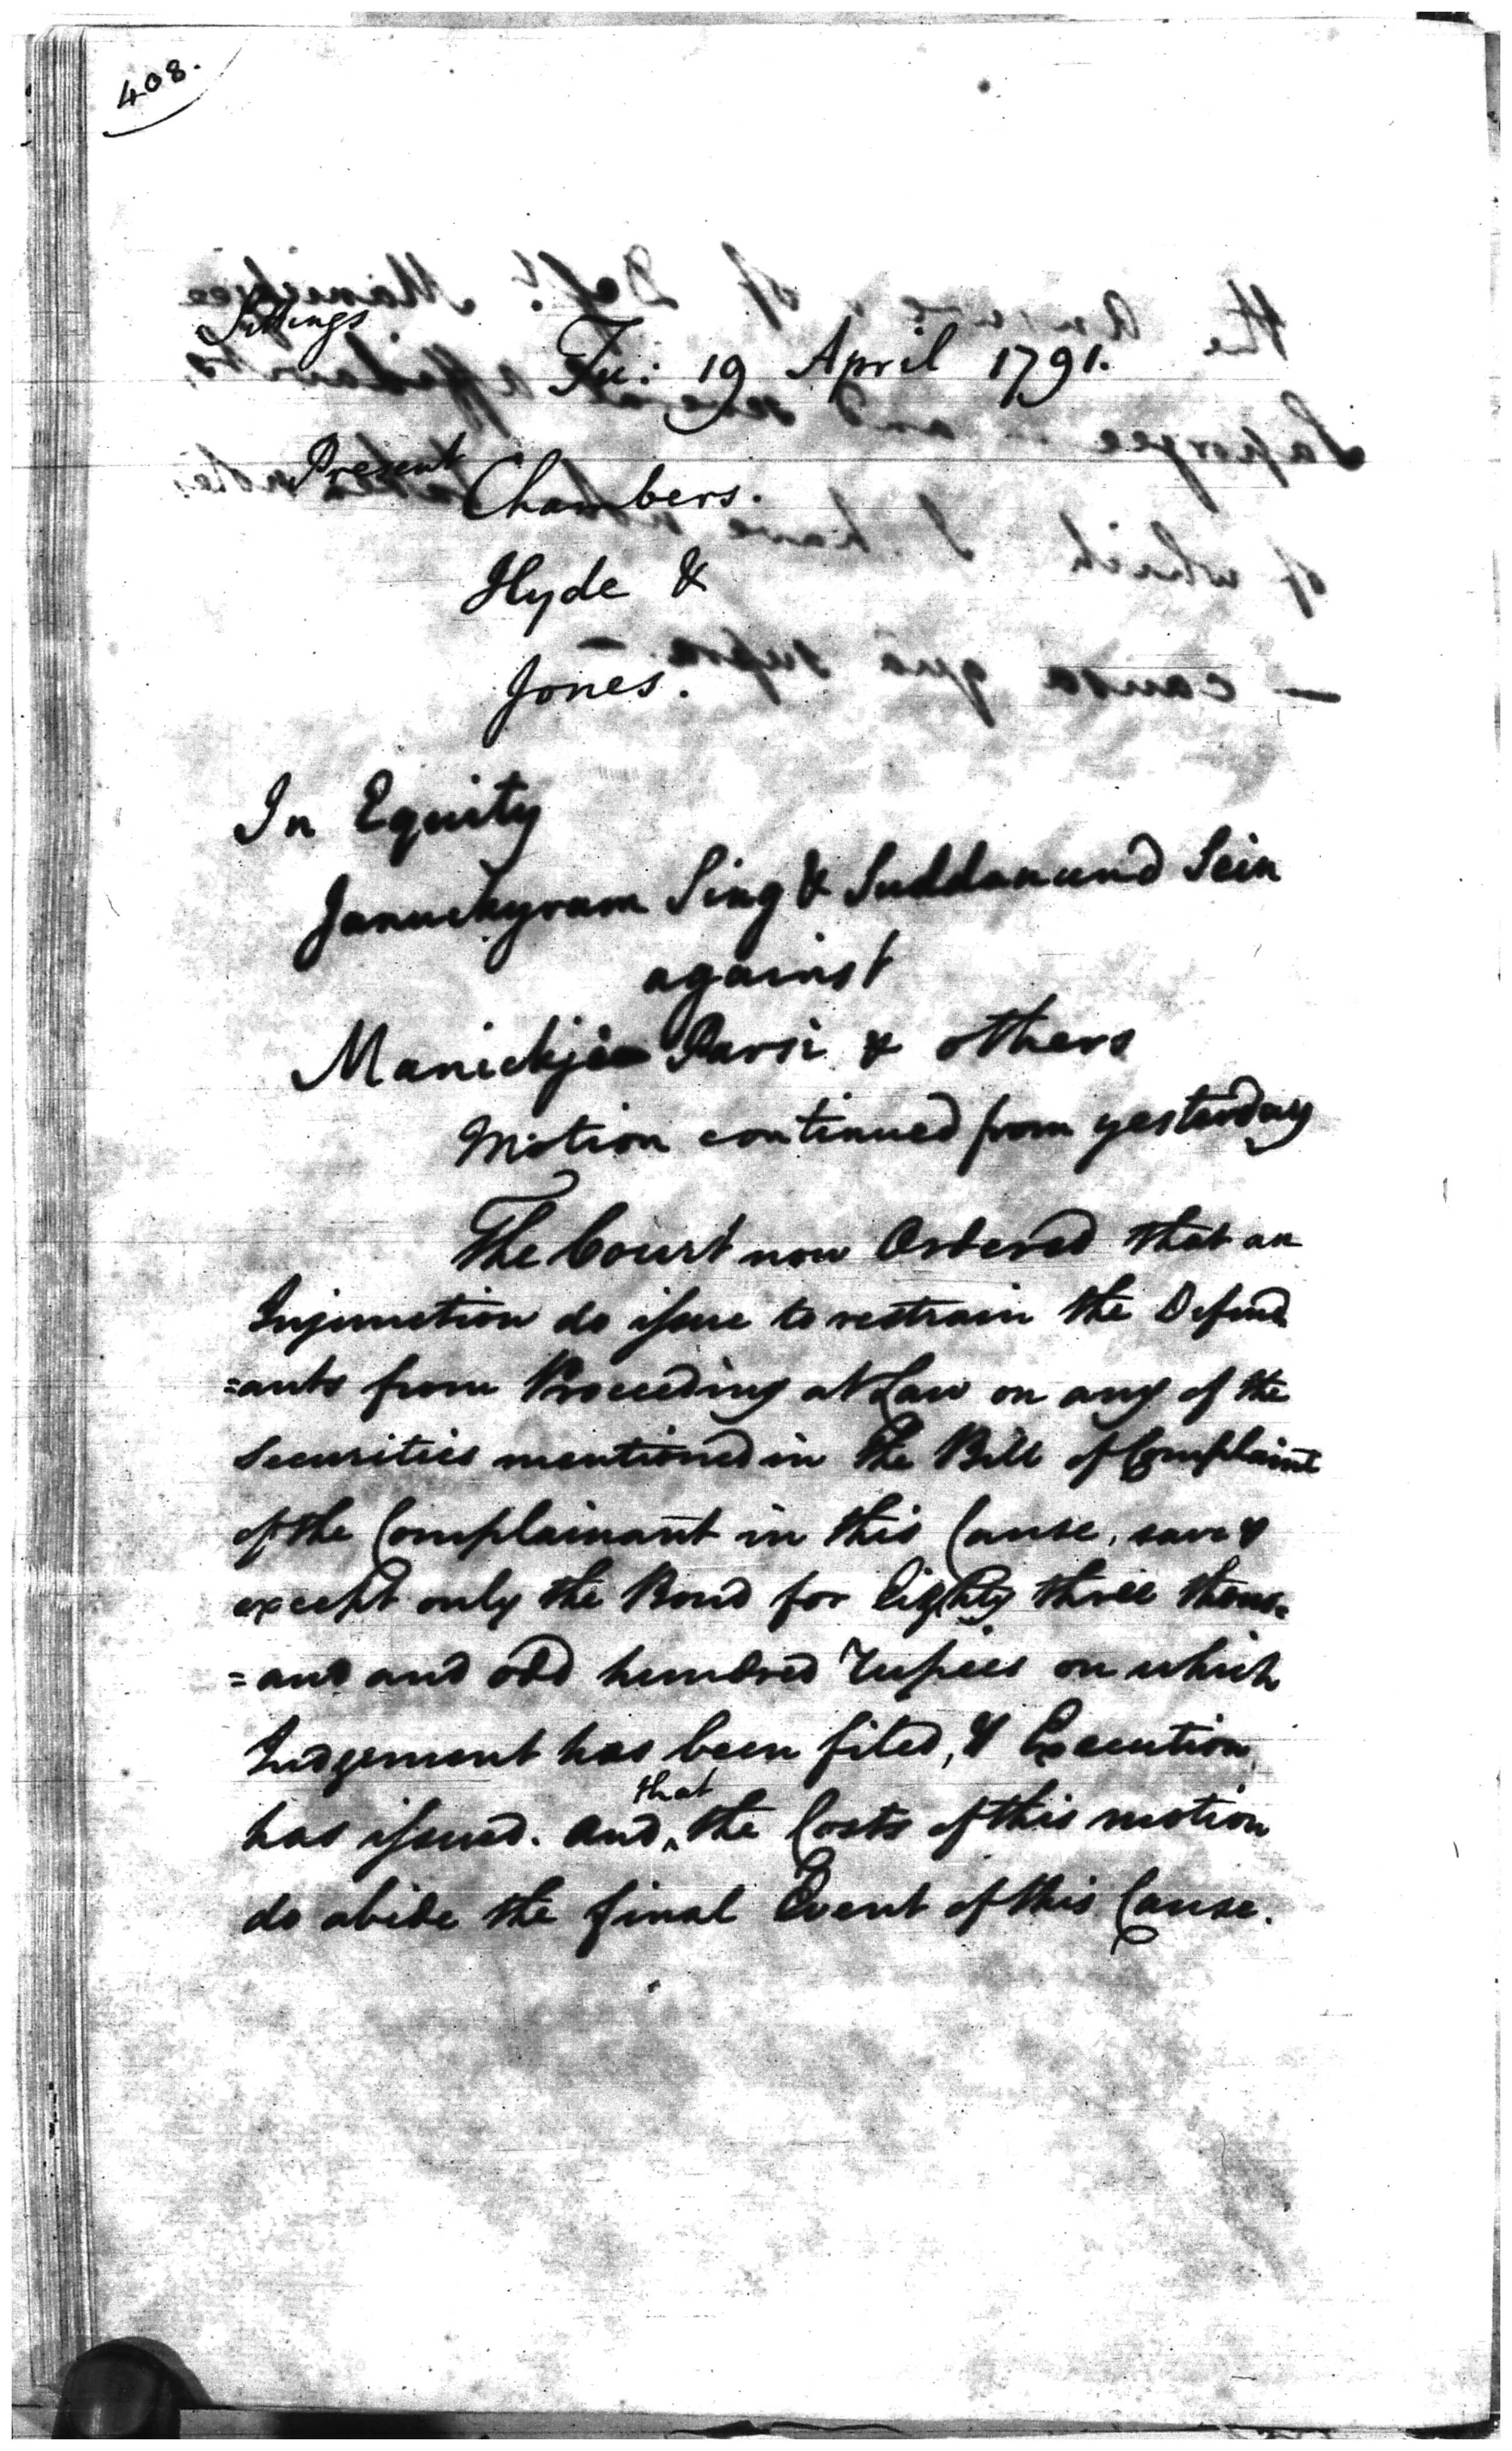 408.
Sittings
Tu: 19 April 1791.
Present
Chambers.
Hyde &
Jones.
In Equity
Januckyram Sing & Suddanund Sein
against
Manickjee Parsi & others
Motion continued from yesterday
The Court now Ordered that an
Injunction do issue to restrain the Defend
=ants from Proceeding at Law on any of the
Securities mentioned in the Bill of Complaint
of the Complainant in this Cause, save &
except only the Bond for Eighty three thous=
=and and odd hundred rupees on which
Judgement has been filed, & Execution
has issued. And that the Costs of this motion
do abide the final Event of this Cause.